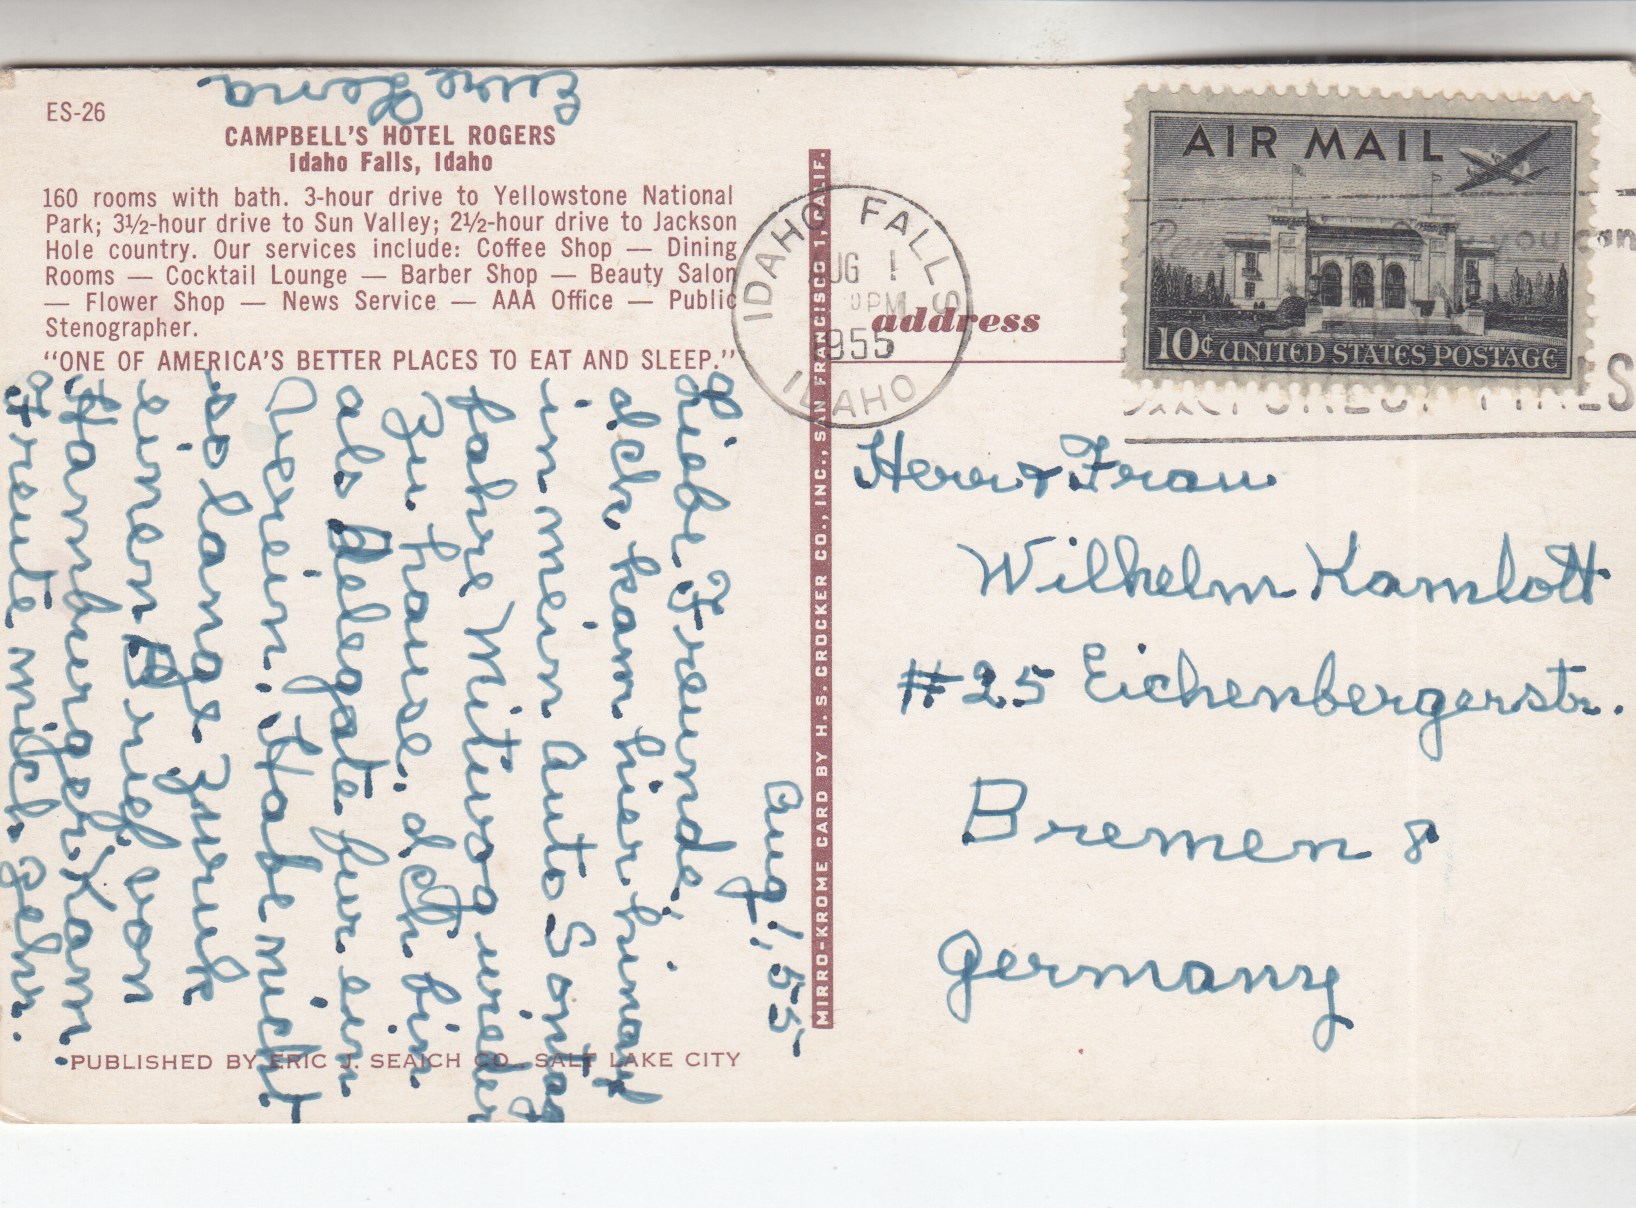 ES-26
CAMPBELL'S HOTEL ROGERS
Idaho Falls, Idaho
160 rooms with bath. 3-hour drive to Yellowstone National
Park; 3½-hour drive to Sun Valley; 2½-hour drive to Jackson
Hole country. Our services include: Coffee Shop — Dining
Rooms — Cocktail Lounge — Barber Shop — Beauty Salon
— Flower Shop — News Service — AAA Office — Public
Stenographer.
"ONE OF AMERICA'S BETTER PLACES TO EAT AND SLEEP."
Aug 1, 55
Liebe Freunde!
Ich kam hier hinauf
in mein Auto Sontag
fahre Mitwog wieder
Zu hause. Ich bin
als Delegate fur ein
Verein. Habe nicht
so lange Zuruk
einen Brief von
Hamburger Kam.
Freute mich Sehr.
Eure Lena.
PUBLISHED BY ERIC J. SEAICH CO., SALT LAKE CITY
MIRRO-KROME CARD BY H. S. CROCKER CO., INC., SAN FRANCISCO 1, CALIF.
IDAHO FALLS
AUG 1
PM
1955
IDAHO
AIR MAIL
10¢ UNITED STATES POSTAGE
you can
FOREST FIRES
address
Herr & Frau
Wilhelm Kamlott
#25 Eichenbergerstr.
Bremen 8
Germany